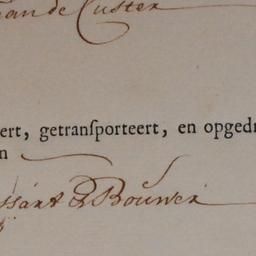 van de Custer
ert, getranſporteert, en opged
n
ssart & Bouwer